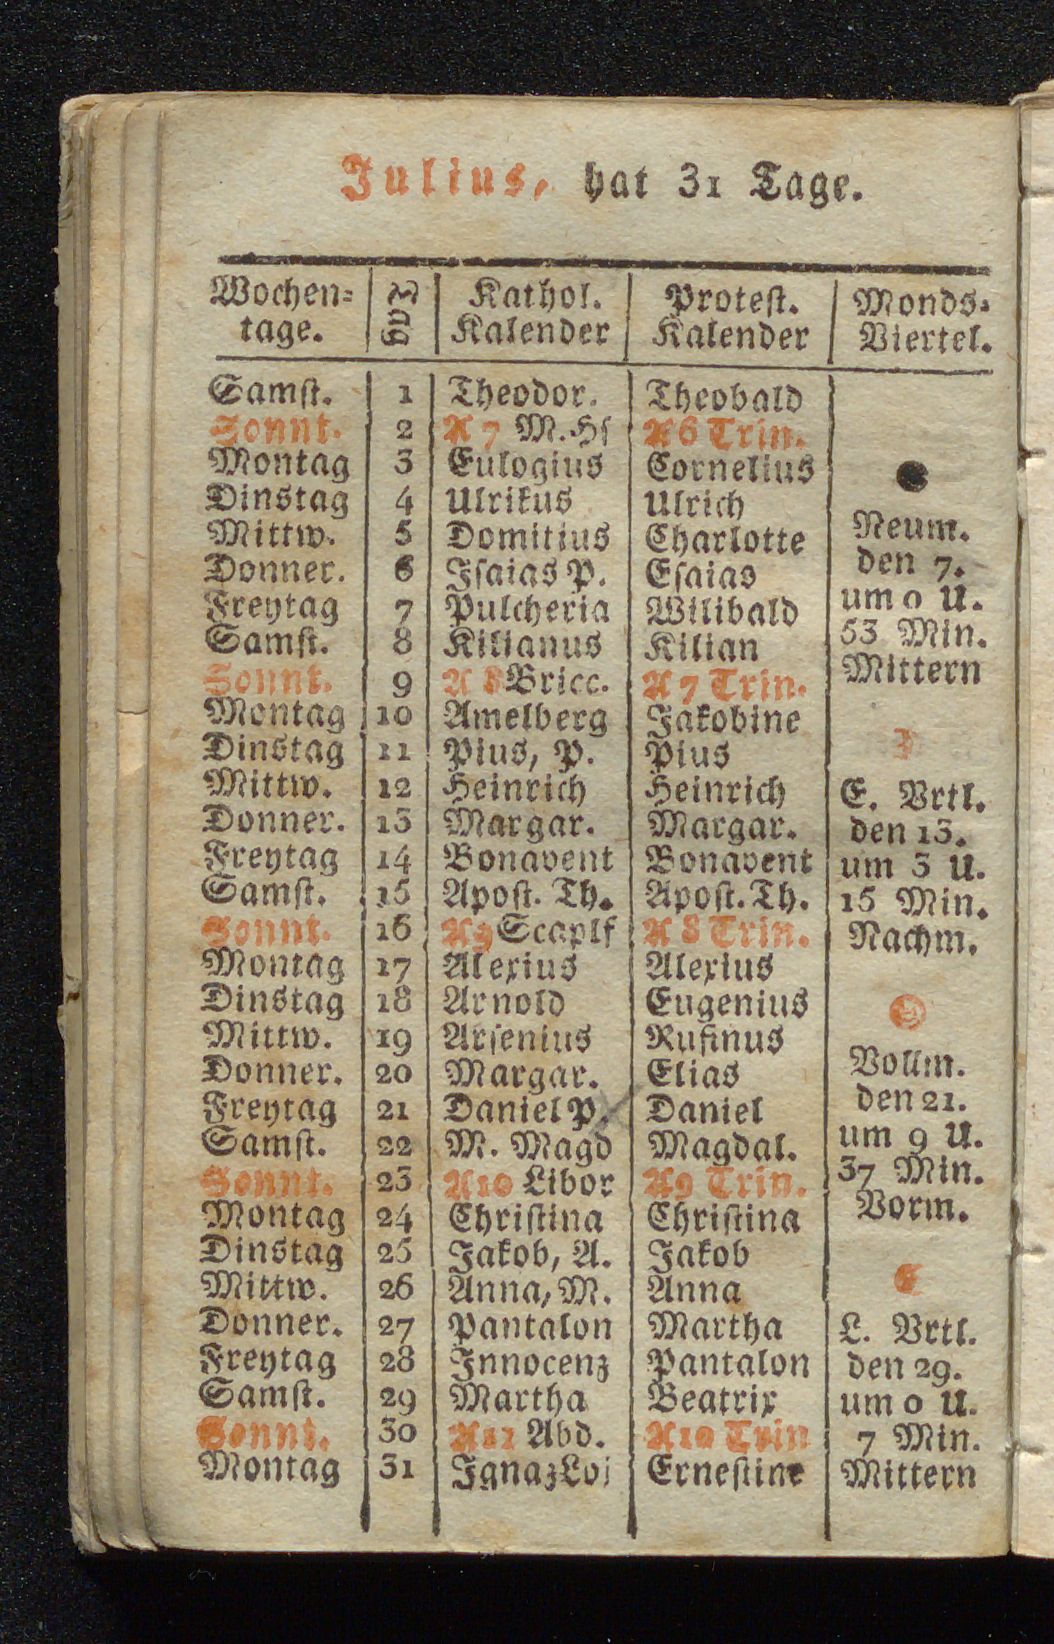 Julius, hat 31 Tage.
Wochen= tage. | Tag | Kathol. Kalender | Protest. Kalender | Monds= Viertel.
Samst. 1 Theodor. Theobald
Sonnt. 2 A 7 M. Hs A 6 Trin.
Montag 3 Eulogius Cornelius
Dinstag 4 Ulrikus Ulrich
Mittw. 5 Domitius Charlotte
Donner. 6 Isaias P. Esaias
Freytag 7 Pulcheria Wilibald
Samst. 8 Kilianus Kilian
Sonnt. 9 A 8 Bricc. A 7 Trin.
Montag 10 Amelberg Jakobine
Dinstag 11 Pius, P. Pius
Mittw. 12 Heinrich Heinrich
Donner. 13 Margar. Margar.
Freytag 14 Bonavent Bonavent
Samst. 15 Apost. Th. Apost. Th.
Sonnt. 16 A9 Scaplf A 8 Trin.
Montag 17 Alexius Alexius
Dinstag 18 Arnold Eugenius
Mittw. 19 Arsenius Rufinus
Donner. 20 Margar. Elias
Freytag 21 Daniel P. Daniel
Samst. 22 M. Magd Magdal.
Sonnt. 23 A10 Libor A9 Trin.
Montag 24 Christina Christina
Dinstag 25 Jakob, A. Jakob
Mittw. 26 Anna, M. Anna
Donner. 27 Pantalon Martha
Freytag 28 Innocenz Pantalon
Samst. 29 Martha Beatrix
Sonnt. 30 A11 Abd. A10 Trin
Montag 31 Ignaz Loj Ernestine
Neum.
den 7.
um 0 U.
53 Min.
Mittern
E. Vrtl.
den 13.
um 3 U.
15 Min.
Nachm.
Vollm.
den 21.
um 9 U.
37 Min.
Vorm.
L. Vrtl.
den 29.
um 0 U.
7 Min.
Mittern